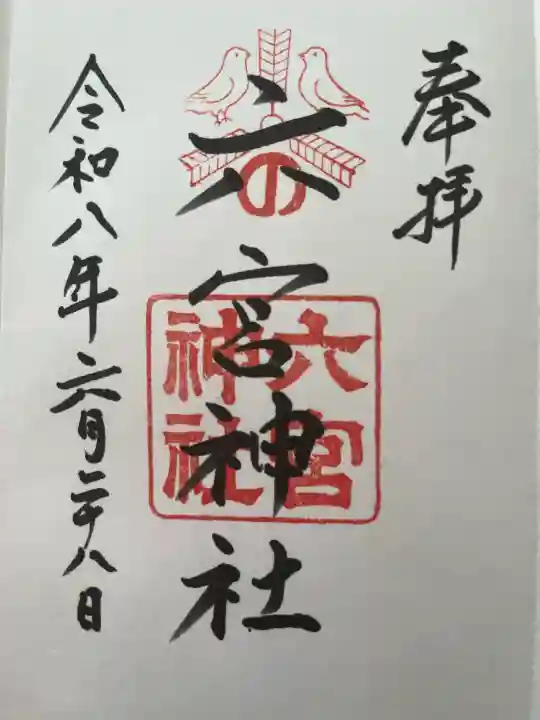 奉拝
六宮神社
の
六宮
神社
令和八年六月二十八日